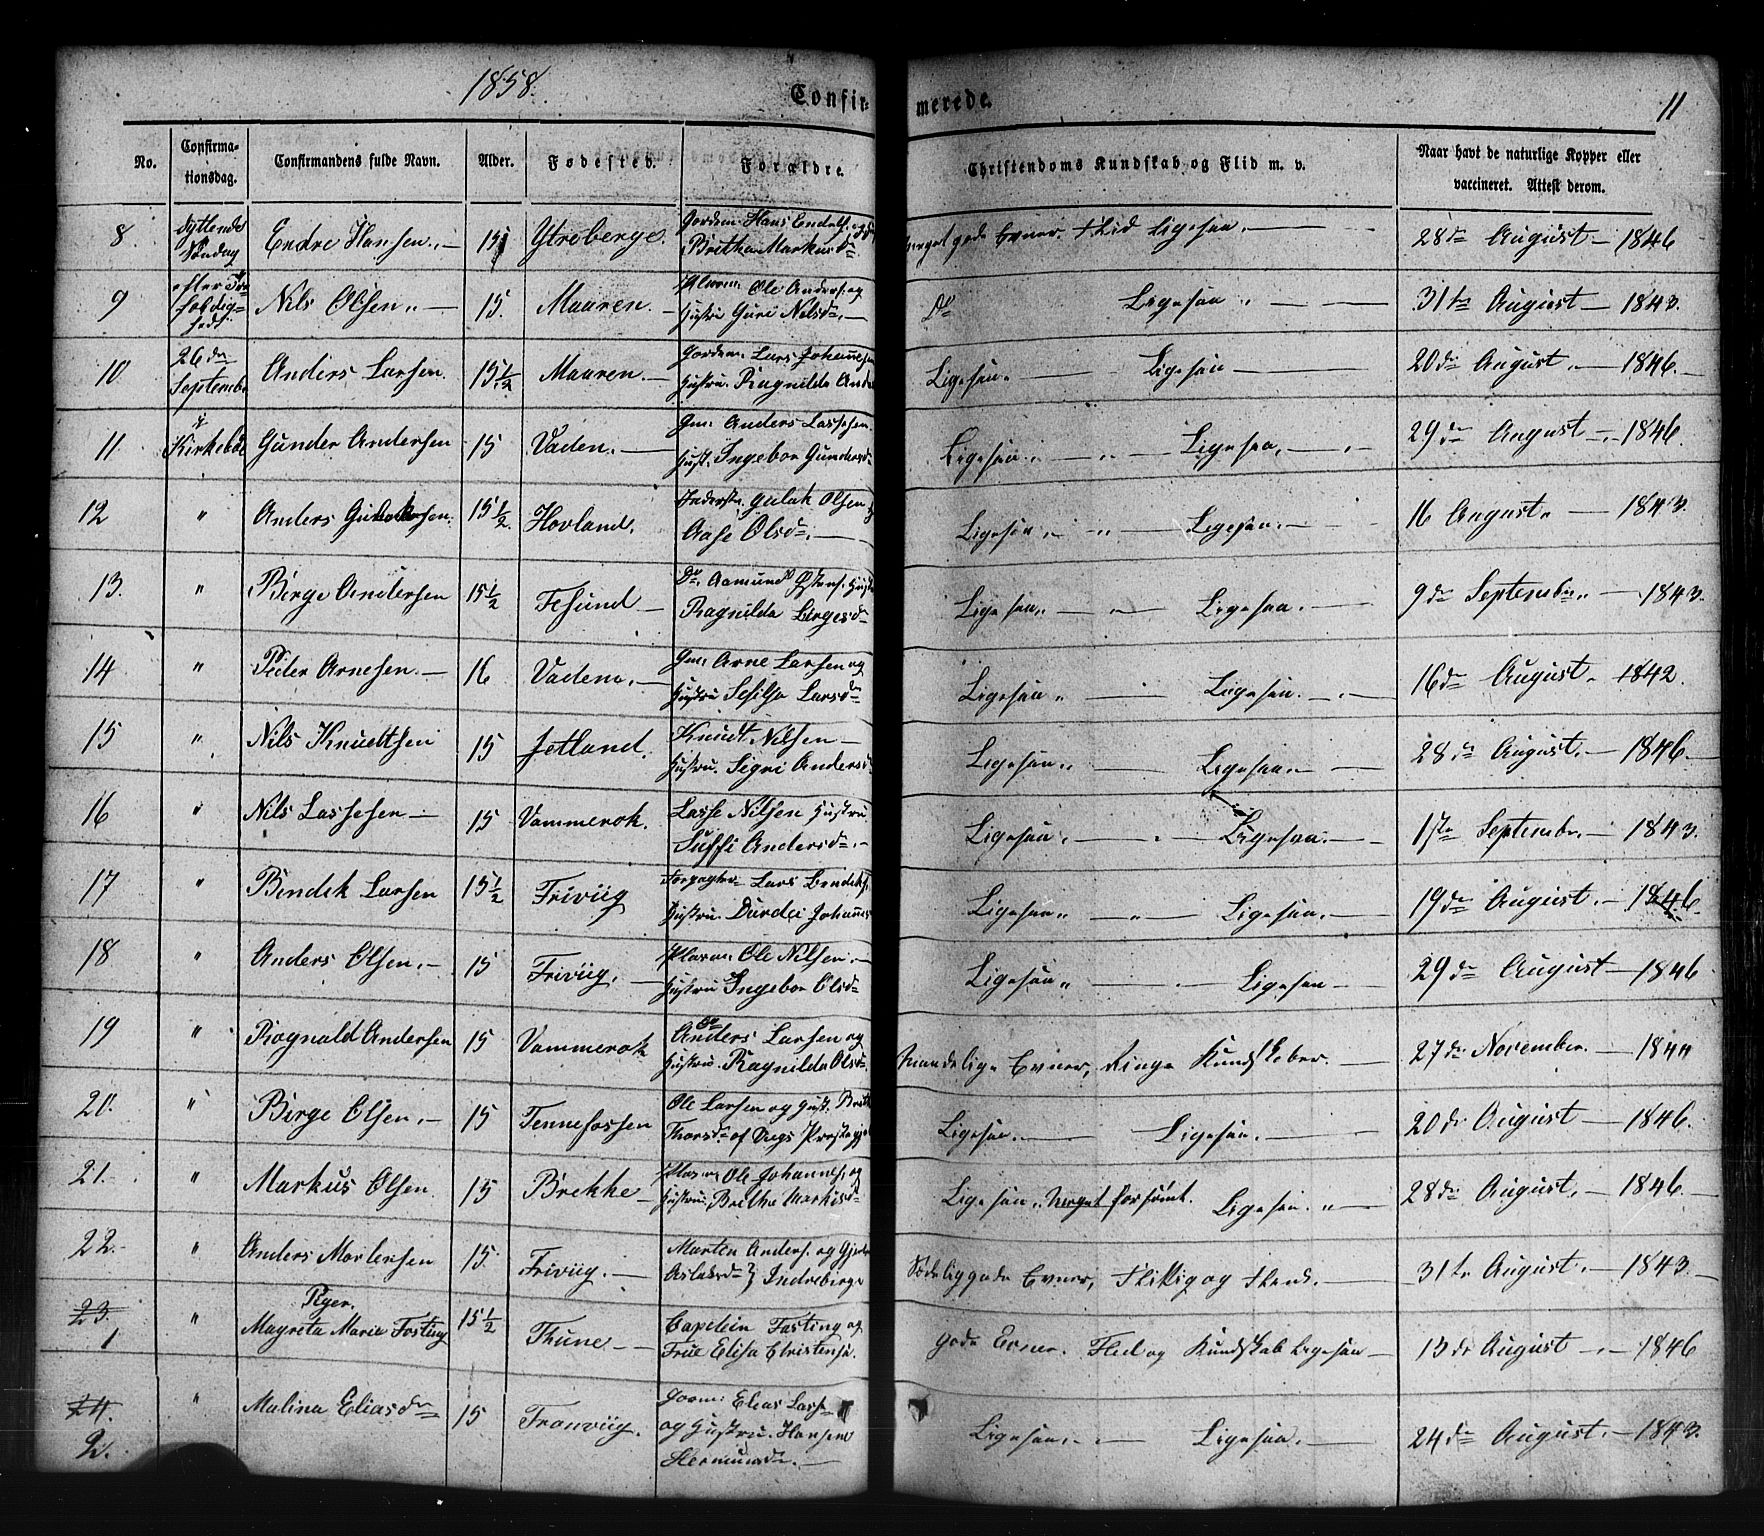 1858.
Confir-
merede.
11
No.
Confirma-
tionsdag.
Confirmandens fulde Navn.
Alder.
Fødested.
Forældre.
Christendoms Kundskab og Flid m. v.
Naar havt de naturlige Kopper eller
vaccineret. Attest derom.
8 Syttende Søndag Endre Hansen 15 Ytreberge. Gordm. Hans Endels. Brithe Markusd. meget gode Evner. Flid Ligesaa. 28de August 1846
9 efter Nils Olsen 15. Maaren. Ole Anders. og Hustru Guri Nilsd. Do Ligesaa 31te August 1843.
10 26de September Anders Larsen. 15½ Maaren. Gordm. Lars Johannesen Hustru Ragnilda Ligesaa. Ligesaa 20de August 1846.
11 Kirkebø Gunder Andersen 15 Vaden. Gm. Anders Lassesen Hust. Ingebor Gundersd. Ligesaa Ligesaa. 29de August 1846.
12 " Anders 15½. Hovland. Gulak Olsen Aase Olsd. Ligesaa Ligesaa. 16 August 1843.
13. " Birge Andersen 15½ Do. Aamund Ragnilda Bergesd. Ligesaa Ligesaa. 9de September 1843.
14 " Peder Arnesen. 16 Vadene. Gm. Arne Larsen og Hustru Larsd. Ligesaa Ligesaa. 16de August 1842.
15 " Nils Knudtsen 15 Jetland. Knudt Nilsen Hustru. Sigri Andersd. Ligesaa Ligesaa. 28de August 1846.
16 " Nils Lassesen 15 Vammerok. Lasse Nilsen Hustru Andersd. Ligesaa. Ligesaa. 17de September 1843.
17 " Bendik Larsen 15½ Friviig Lars Hustru. Durdei Johannes Ligesaa Ligesaa. 19de August. 1846.
18 " Anders Olsen. 15 Friviig. Ole Nilsen. Hustru Ingebor Olsd. Ligesaa Ligesaa 29de August 1846
19 " Ragnald Andersen 15 Vammerok Anders Larsen og Hustru. Ragnilda Olsd. maadelige Evner, Ringe Kundskaber. 27de November. 1844
20. " Birge Olsen. 15 Tennefossen Ole Larsen og Hust. Thorsd. af Ligesaa. Ligesaa. 20de August 1846.
21. " Markus Olsen. 15 Brekke Ole Johannes. og Hustru. Brithe Markusd. Ligesaa meget forsømt. Ligesaa. 28de August. 1846.
22. " Anders Mortensen 15. Friviig. Morten Anders. og Aslaksd. Indrebirge gode Evner, Flittig og 31te August. 1843.
23. 1 " Magreta Marie Fasting 15½ Thune Capetein Fasting og Frue Elisa gode Evner. Flid og Kundskab Ligesaa 13de August 1846
24. 2. " Malina Eliasd. 15 Franviig. Elias og Hustru. Ligesaa. Ligesaa. 24de August. 1843.